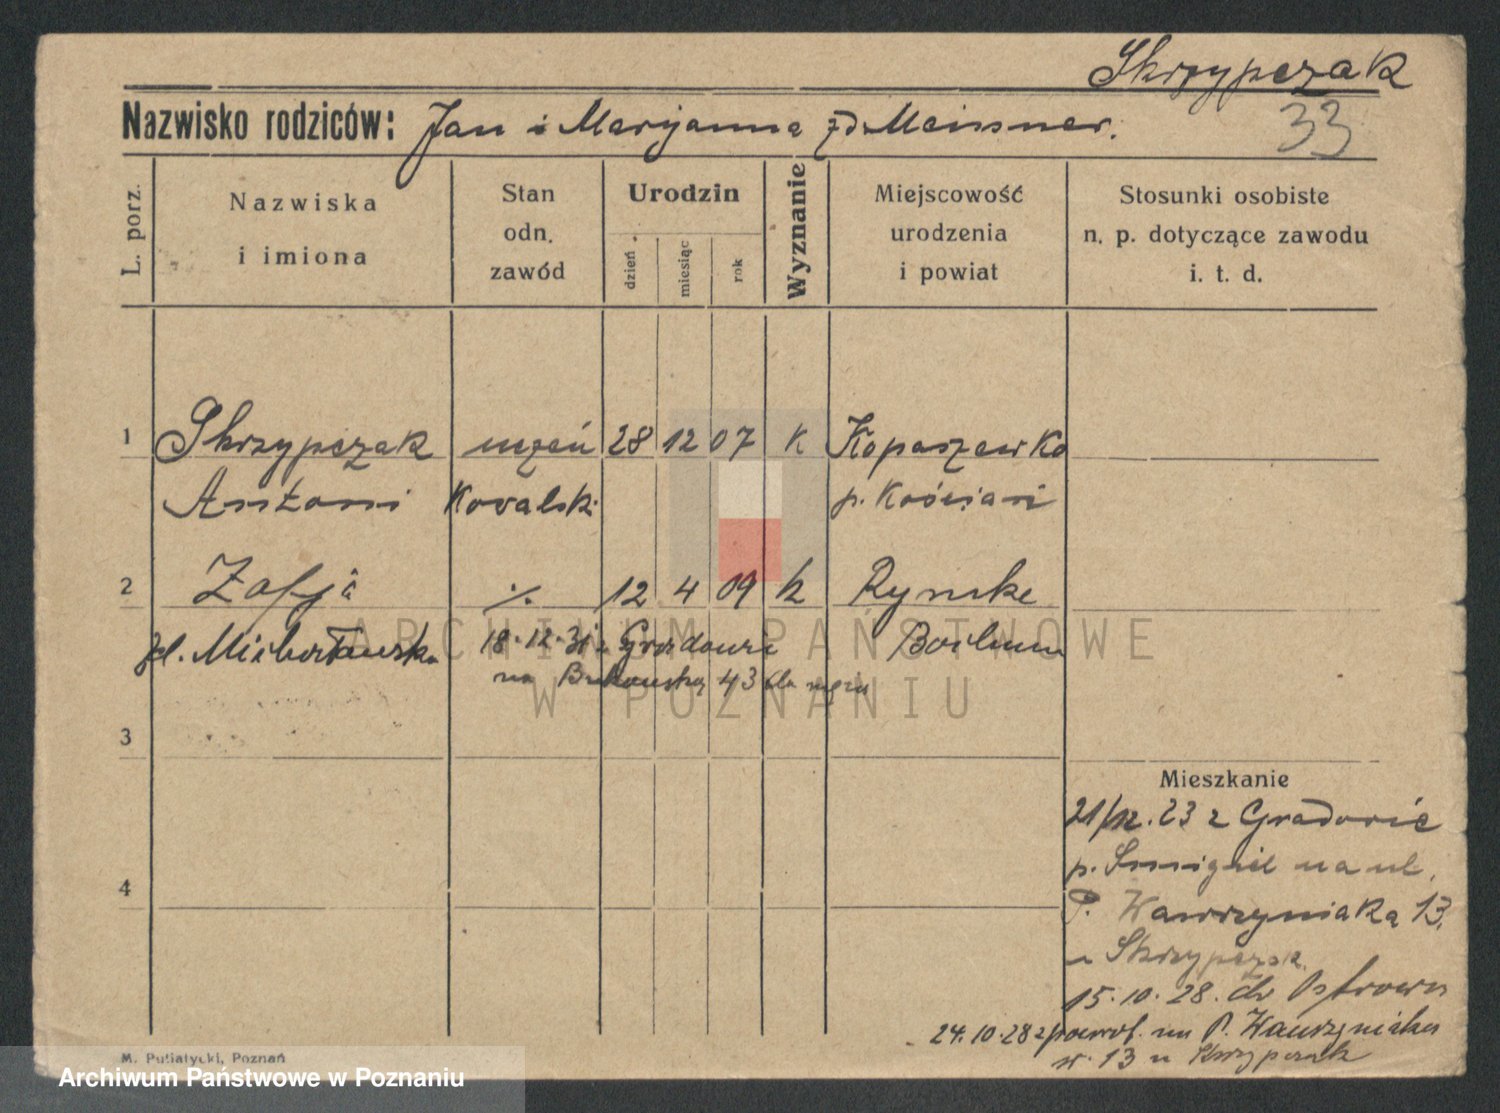 Skrzypczak
Nazwisko rodziców: Jan i Maryanna zd. Meissner.
33
L. porz.
Nazwiska
i imiona
Stan
odn.
zawód
Urodzin
dzień
miesiąc
rok
Wyznanie
Miejscowość
urodzenia
i powiat
Stosunki osobiste
n. p. dotyczące zawodu
i. t. d.
1 Skrzypczak uczeń 28 12 07 K Kopaszewko
Antoni Kovalski p. Kościan
2 Zofja ·/. 12 4 09 k
18.12.31 z
na Bukowską 43 do męża
3
Mieszkanie
21/12.23 z Gradowic
p. Śmigiel na ul.
P. Wawrzyniaka 13.
u Skrzypczak
15.10.28. do Ostrowa
24.10.28 z powrot. na P. Wawrzyniaka
nr. 13 u Skrzypczak
4
M. Putiatycki, Poznań
ARCHIWUM PAŃSTWOWE
W POZNANIU
Archiwum Państwowe w Poznaniu